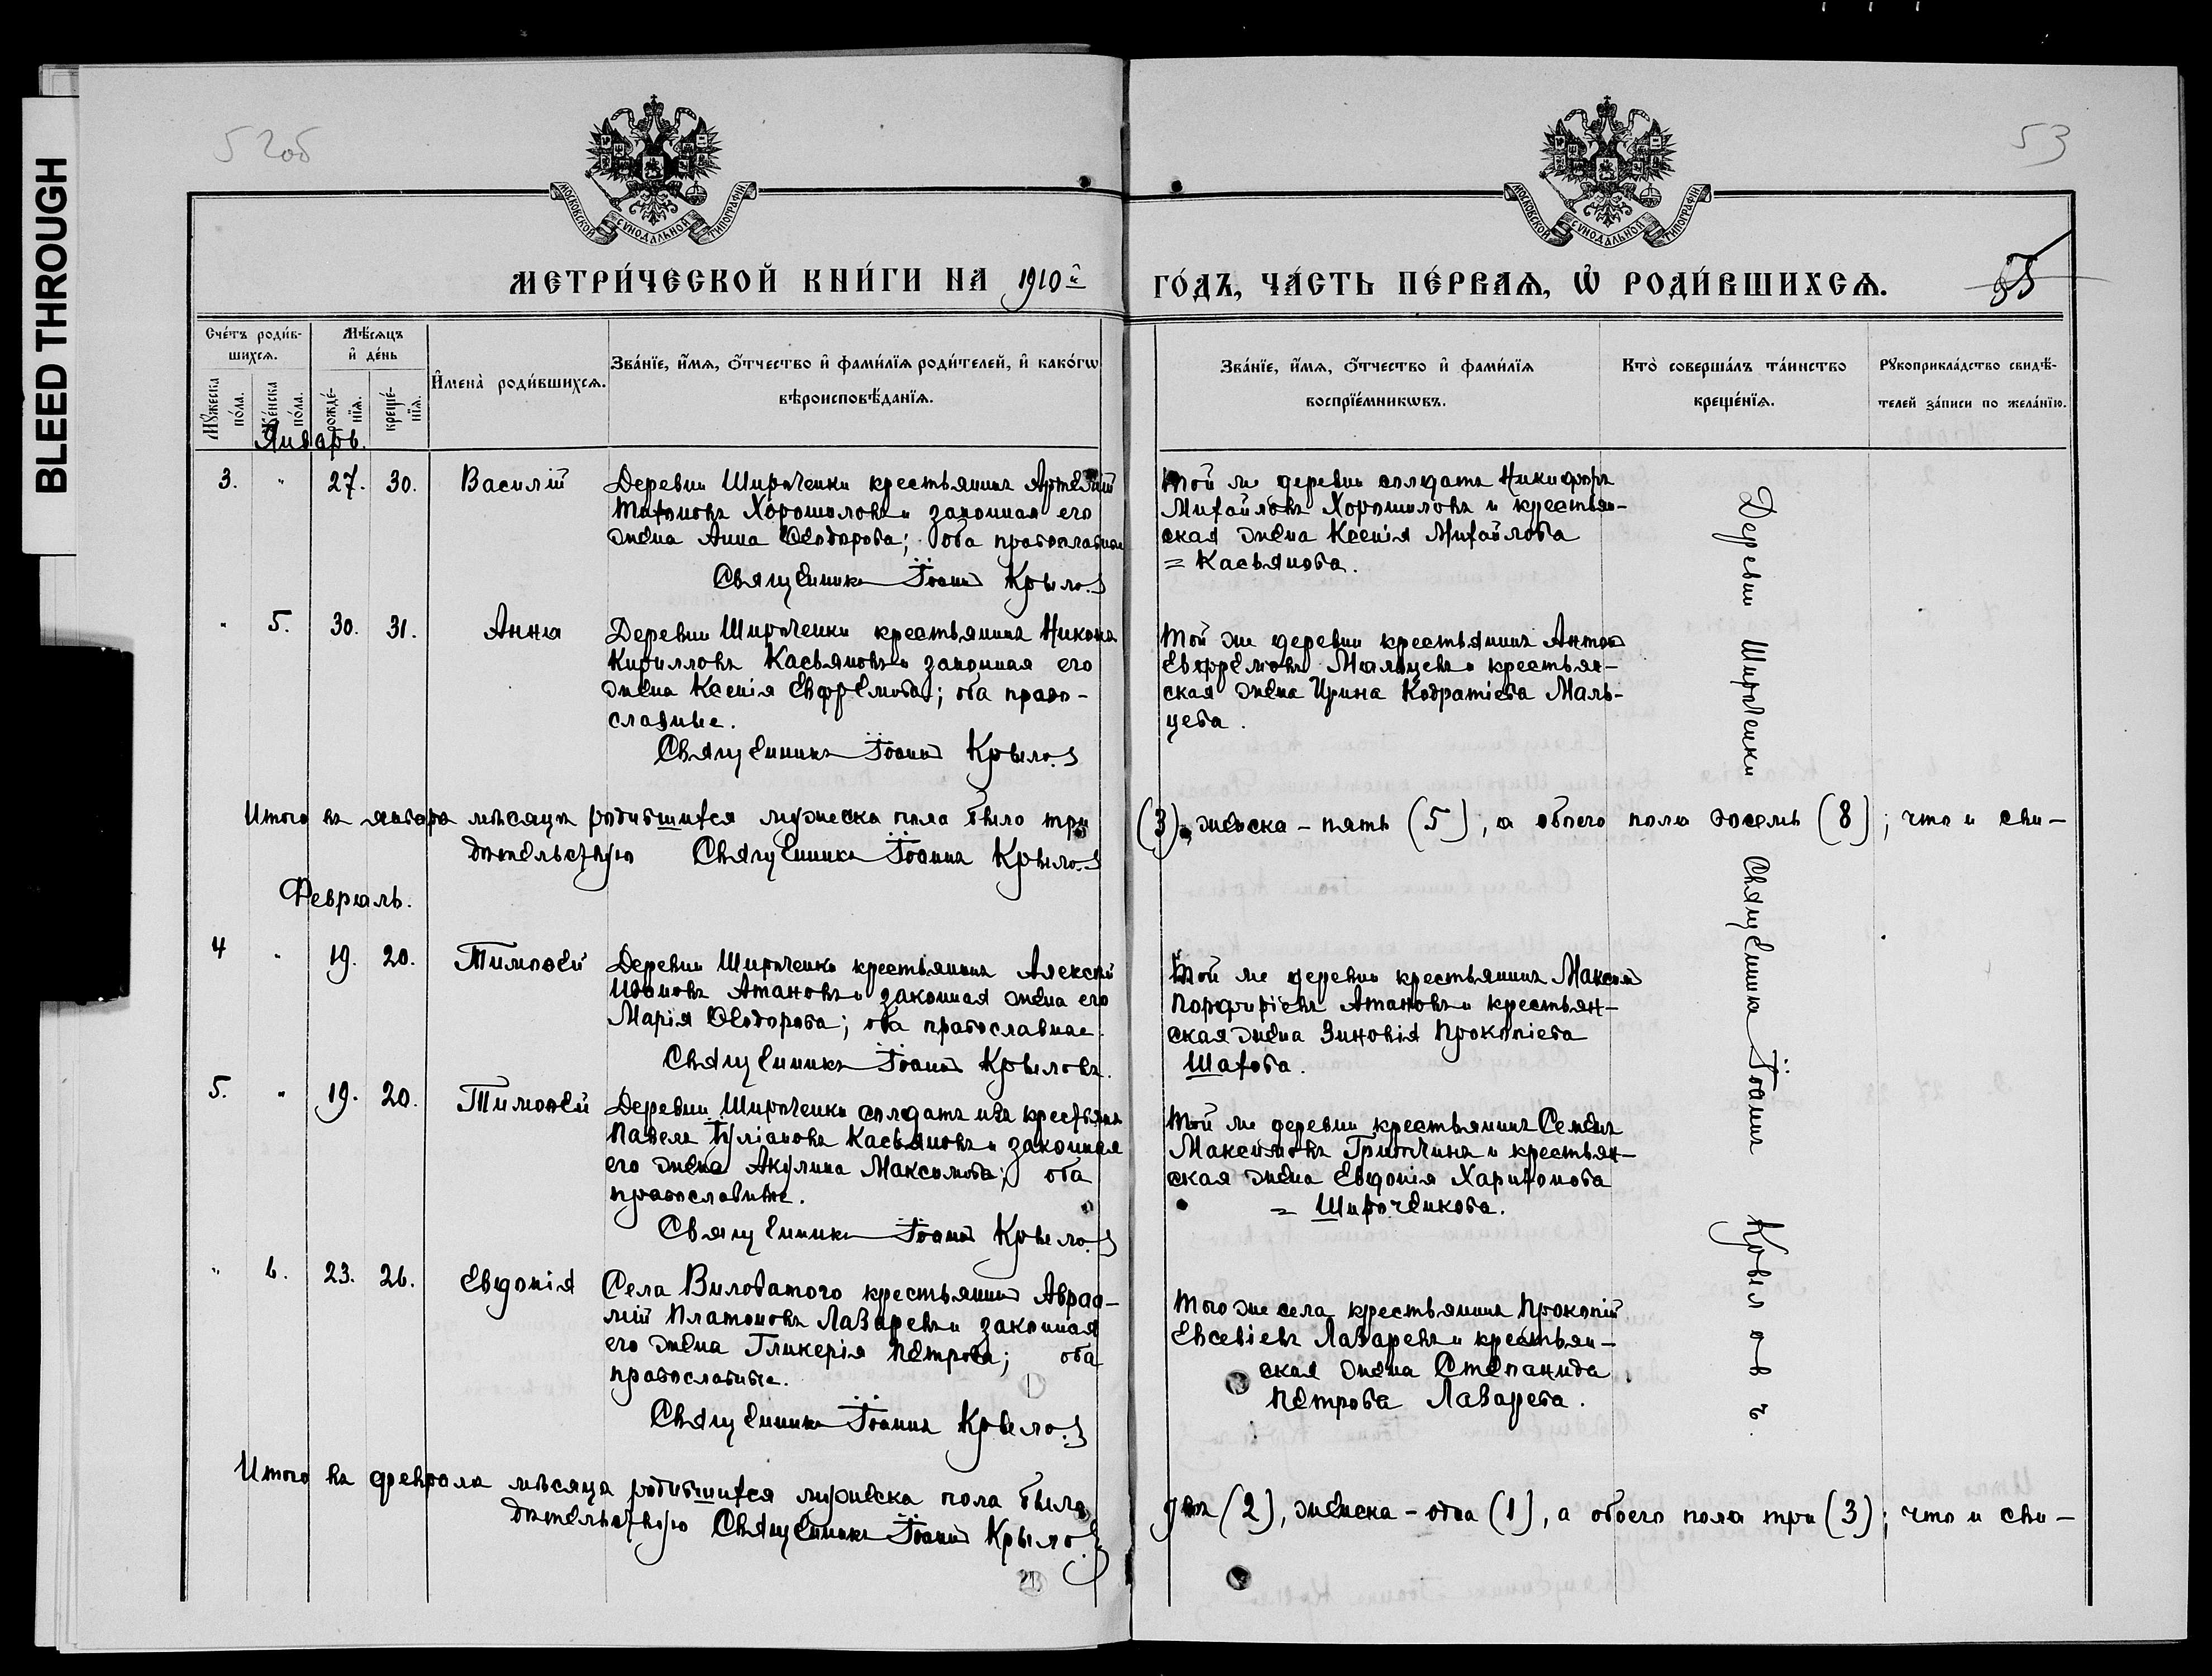 BLEED THROUGH
52об
53
МОСКОВСКОЙ СѴНОДАЛЬНОЙ ТИПОГРАФИИ
МОСКОВСКОЙ СѴНОДАЛЬНОЙ ТИПОГРАФИИ
МЕТРИ́ЧЕСКОЙ КНИ́ГИ НА 1910й
ГО́ДЪ, ЧА́СТЬ ПЕ́РВАѦ, Ѡ҆ РОДИ́ВШИХСѦ.
Сче́тъ роди́в-
шихсѧ.
Мꙋ́жеска по́ла.
Же́нска по́ла.
Мѣ́сѧцъ
и҆ де́нь
рожде́-
нїѧ.
креще́-
нїѧ.
И҆мена̀ роди́вшихсѧ.
Зва́нїе, и҆́мѧ, ѻ҆́тчество и҆ фами́лїѧ роди́телей, и҆ како́гѡ
вѣроисповѣ́данїѧ.
Зва́нїе, и҆́мѧ, ѻ҆́тчество и҆ фами́лїѧ
воспрїе́мникѡвъ.
Кто̀ соверша́лъ та́инство
креще́нїѧ.
Рꙋкоприкла́дство свидѣ́-
телей за́писи по жела́нїю.
Январь.
3. " 27. 30. Василій
Деревни Широченки крестьянинъ Артемій
Матоновъ Хорошиловъ и законная его
жена Анна Ѳеодорова; оба православные
Священникъ Іоаннъ Крыловъ
Той же деревни солдатъ Никифоръ
Михайловъ Хорошиловъ и крестьян-
ская жена Ксенія Михайлова
= Касьянова.
" 5. 30. 31. Анна
Деревни Широченки крестьянинъ Никонъ
Кирилловъ Касьяновъ и законная его
жена Ксенія Евфремова; оба право-
славные.
Священникъ Іоаннъ Крыловъ
Той же деревни крестьянинъ Антонъ
Евфремовъ Мальцевъ и крестьян-
ская жена Ирина Кодратіева Маль-
цева.
Итого въ январѣ мѣсяцѣ родившихся мужеска пола было три (3), женска - пять (5), а обоего пола восемь (8); что и сви-
дѣтельствую Священникъ Іоаннъ Крыловъ
Февраль.
4 " 19. 20. Тимоѳей
Деревни Широченки крестьянинъ Алексѣй
Ивановъ Атановъ и законная жена его
Марія Ѳеодорова; оба православные.
Священникъ Іоаннъ Крыловъ.
Той же деревни крестьянинъ Максимъ
Порфиріевъ Атановъ и крестьян-
ская жена Зиновія Прокопіева
Шахова.
5. " 19. 20. Тимоѳей
Деревни Широченки солдатъ изъ крестьянъ
Павелъ Іуліановъ Касьяновъ и законная
его жена Акулина Максимова; оба
православные.
Священникъ Іоаннъ Крыловъ
Той же деревни крестьянинъ Семенъ
Максимовъ Гритчинъ и крестьян-
ская жена Евдокія Харитонова
= Широченкова.
" 6. 23. 26. Евдокія
Села Виловатого крестьянинъ Авраа-
мій Платоновъ Лазаревъ и законная
его жена Гликерія Петрова; оба
православные.
Священникъ Іоаннъ Крыловъ
Того же села крестьянинъ Прокопій
Евсевіевъ Лазаревъ и крестьян-
ская жена Степанида
Петрова Лазарева.
Деревни Широченки Священникъ Іоаннъ Крыловъ.
Итого въ февралѣ мѣсяцѣ родившихся мужеска пола было два (2), женска - одна (1), а обоего пола три (3); что и сви-
дѣтельствую Священникъ Іоаннъ Крыловъ